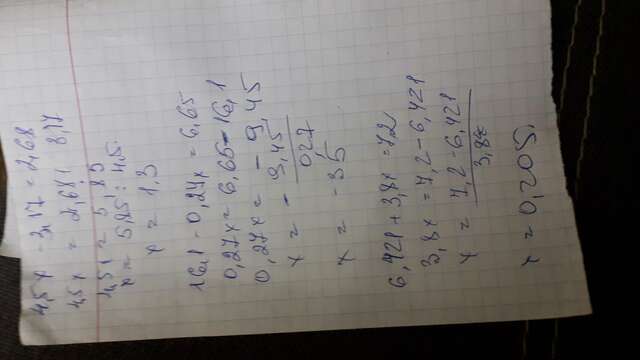 4,5x - 3,17 = 2,68
4,5x = 2,68+ 3,17
4,5x = 5,85
x = 5,85 : 4,5
x = 1,3
16,1 - 0,27x = 6,65
0,27x = 6,65 - 16,1
0,27x = - 9,45
x = - 9,45
0,27
x = -35
6,421 + 3,8x = 7,2
3,8x = 7,2 - 6,421
x = 7,2 - 6,421
3,8x
x = 0,205.